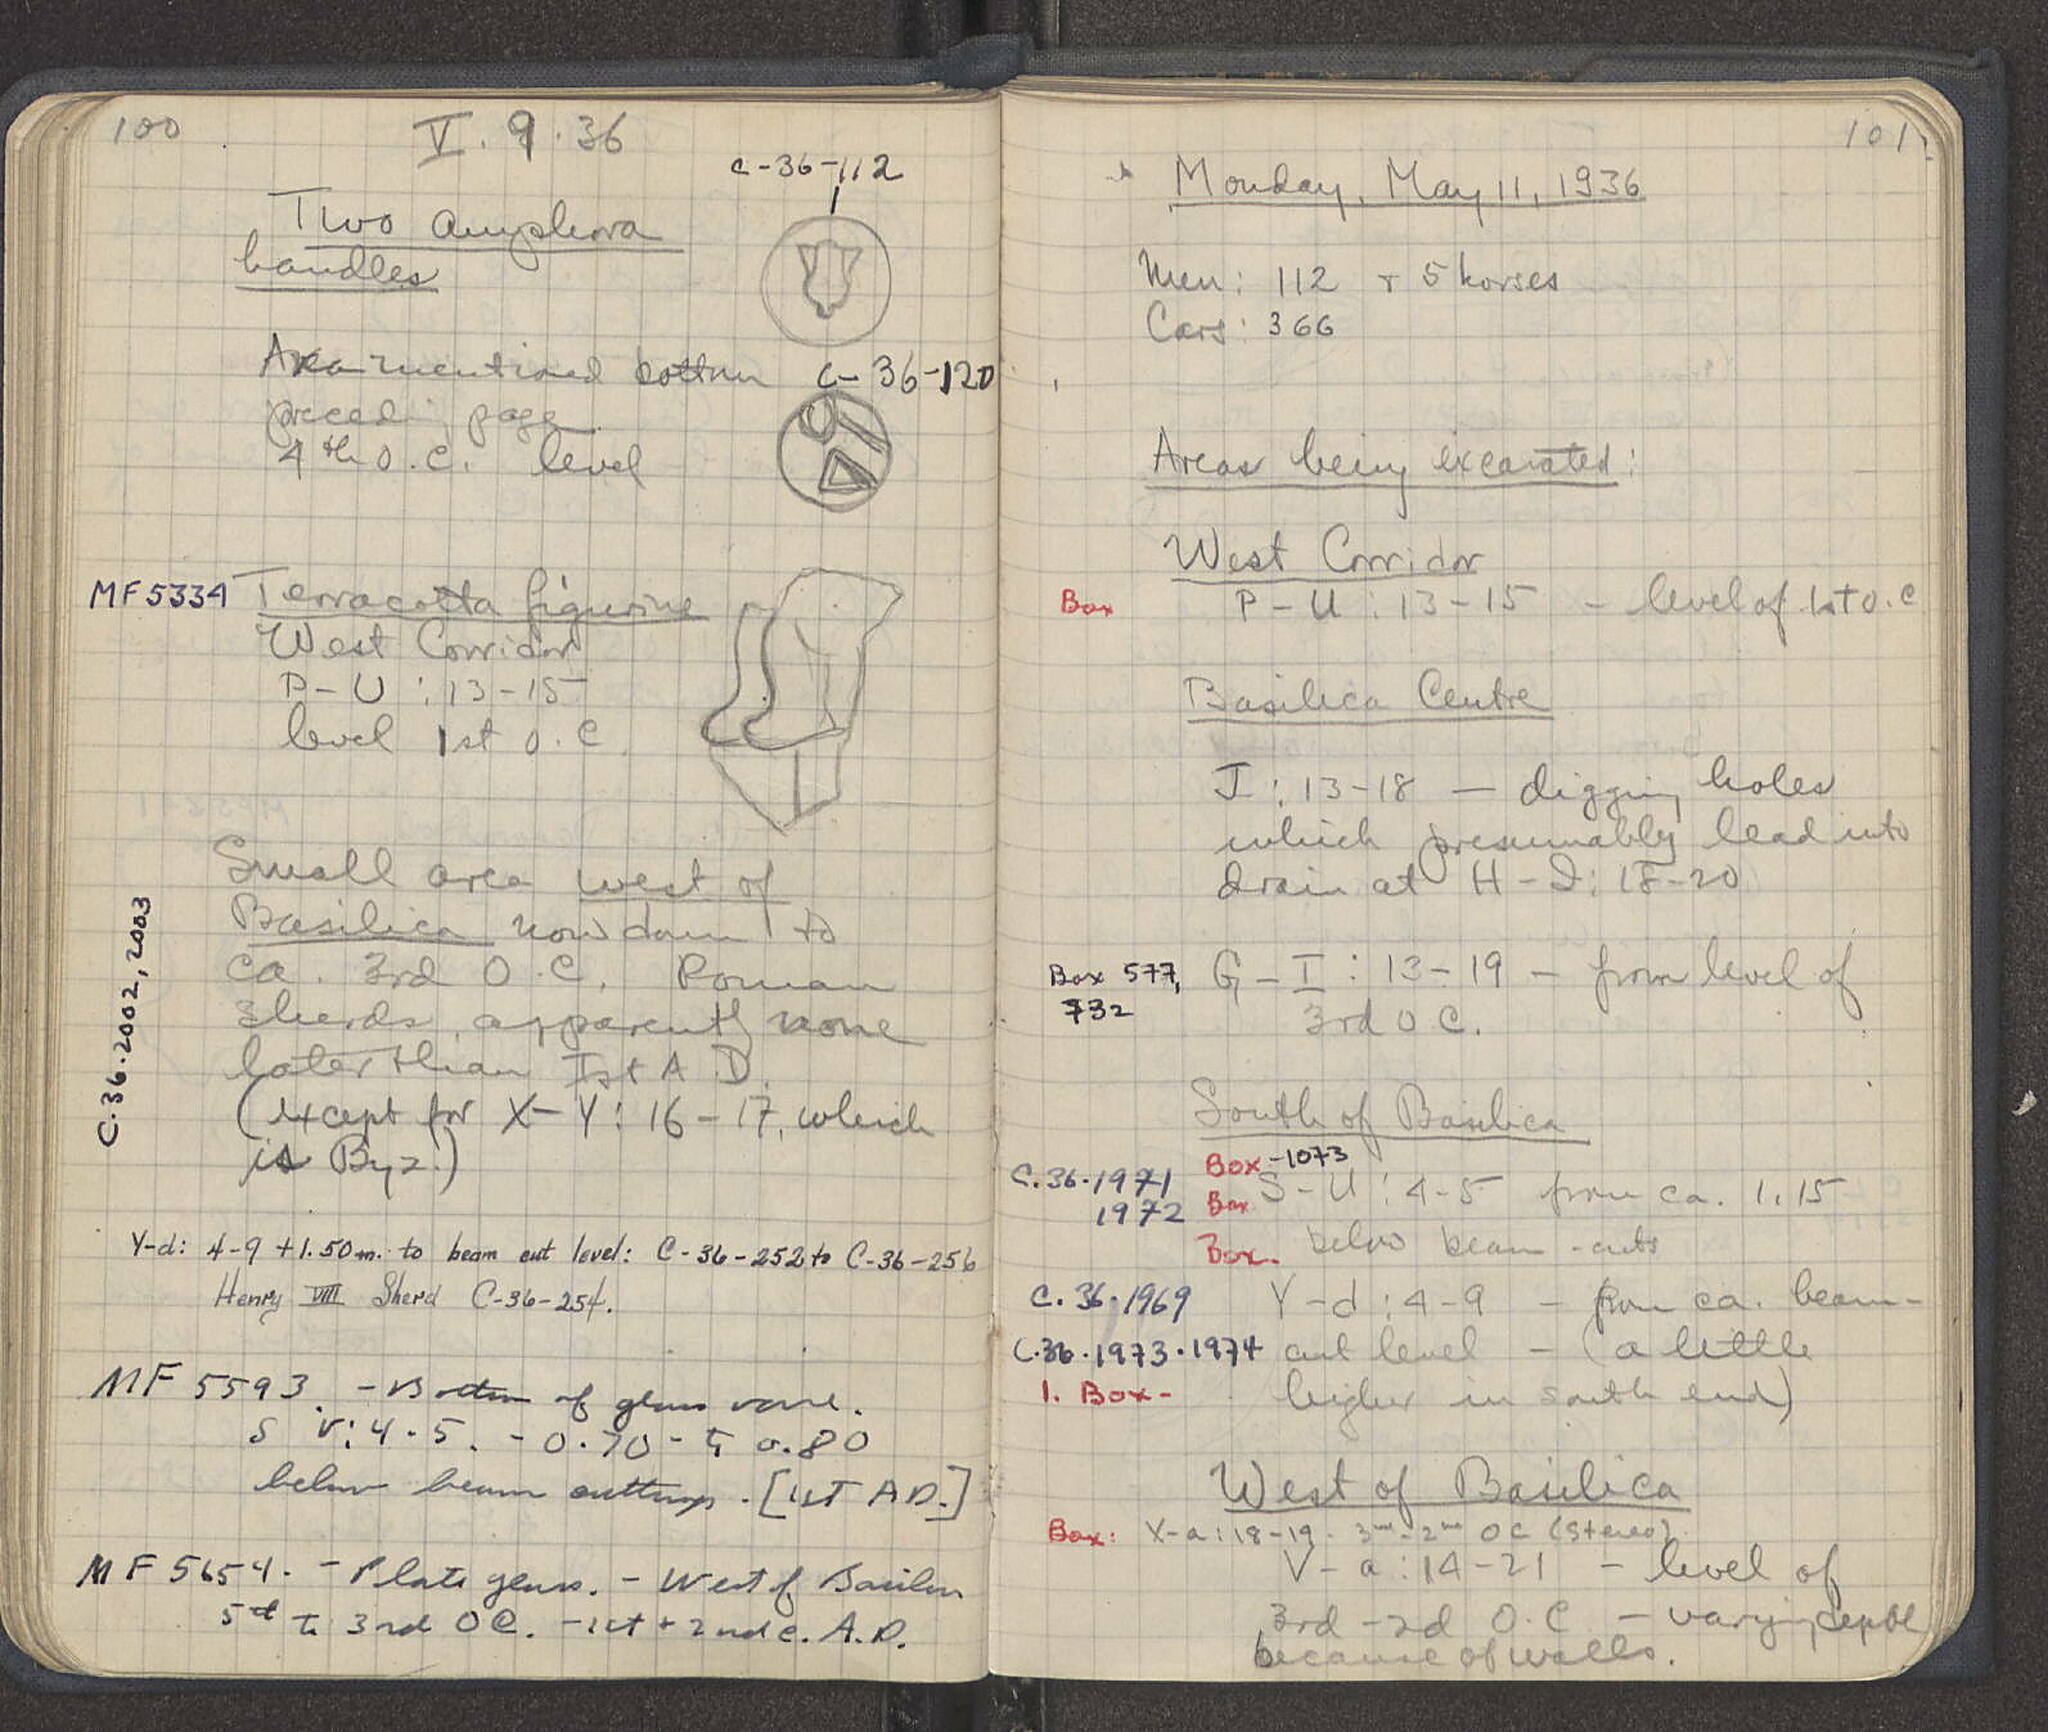 100
V. 9. 36
C-36-112
Two amphora
handles
Area mentioned bottom
C-36-120
preced. page
4th O.C. level
MF 5334 Terracotta figurine
West Corridor
P-U : 13-15
level 1st O.C.
Small area west of
Basilica now down to
ca. 3rd O.C. Roman
sherds, apparently none
later than Ist A.D.
(except for X-Y: 16-17, which
is Byz.)
C.36.2002, 2003
Y-d: 4-9 +1.50m. to beam cut level: C-36-252 to C-36-256
Henry VIII Sherd C-36-254.
MF 5593. - Bottom of glass vase.
S V: 4-5. - 0.70 - to 0.80
below beam cuttings. [1st A.D.]
MF 5654. - Plate glass. - West of Basilica
to 3rd OC. - 1st + 2nd c. A.D.
101.
Monday, May 11, 1936
Men: 112 + 5 horses
Cars: 366
Areas being excavated:
West Corridor
Box P-U : 13-15 - level of 1st O.C
Basilica Centre
I : 13-18 - digging holes
which presumably lead into
drain at H-I: 18-20
Box 577, G-I : 13-19 - from level of
732 3rd O C.
South of Basilica
Box -1073
C.36.1971 Box S-U : 4-5 from ca. 1.15
1972
Box. below beam-cuts
C.36.1969 Y-d : 4-9 - from ca. beam-
C.36.1973.1974 cut level - (a little
1. Box- higher in south end)
West of Basilica
Box: X-a : 18-19. 3rd-2nd OC (Stereo).
V-a : 14-21 - level of
3rd-2d O.C - varying depth
because of walls.